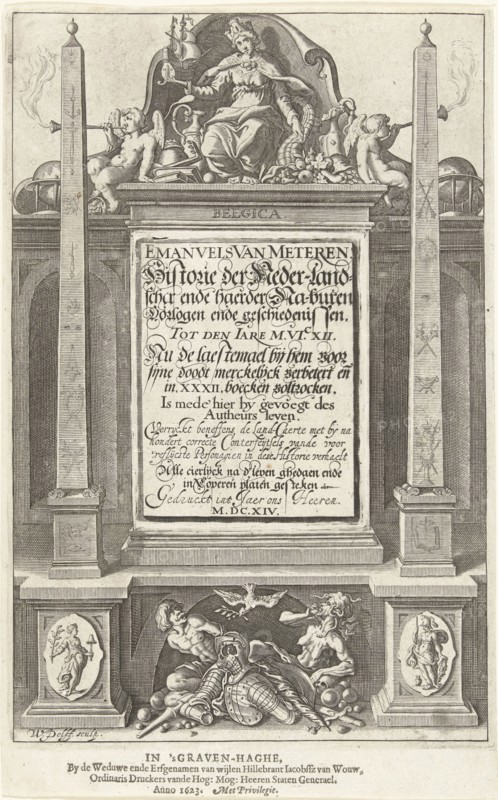 BELGICA
EMANVELS VAN METEREN
Historie der Neder-land-
scher ende haerder Na-buren
Oorlogen ende geschiedenissen.
TOT DEN IARE M.VI.C XII.
Nu de laestemael by hem voor
syne doodt merckelyck verbetert en̄
in .XXXII. boecken voltrocken.
Is mede hier by gevoegt des
Autheurs leven.
Verryckt beneffens de Land-Caerte met by na
hondert correcte Conterfeytsels vande voor
treflycste Personagien in dese Historie verhaelt
Alle cierlyck na d'leven ghedaen ende
in Coperen platen gesneken
Gedruckt int Jaer ons Heeren.
M.DC.XIV.
W. Delff sculp.
IN 'sGRAVEN-HAGHE,
By de Weduwe ende Erfgenamen van wijlen Hillebrant Iacobssz van Wouw,
Ordinaris Druckers vande Hog: Mog: Heeren Staten Generael.
Anno 1623. Met Privilegie.